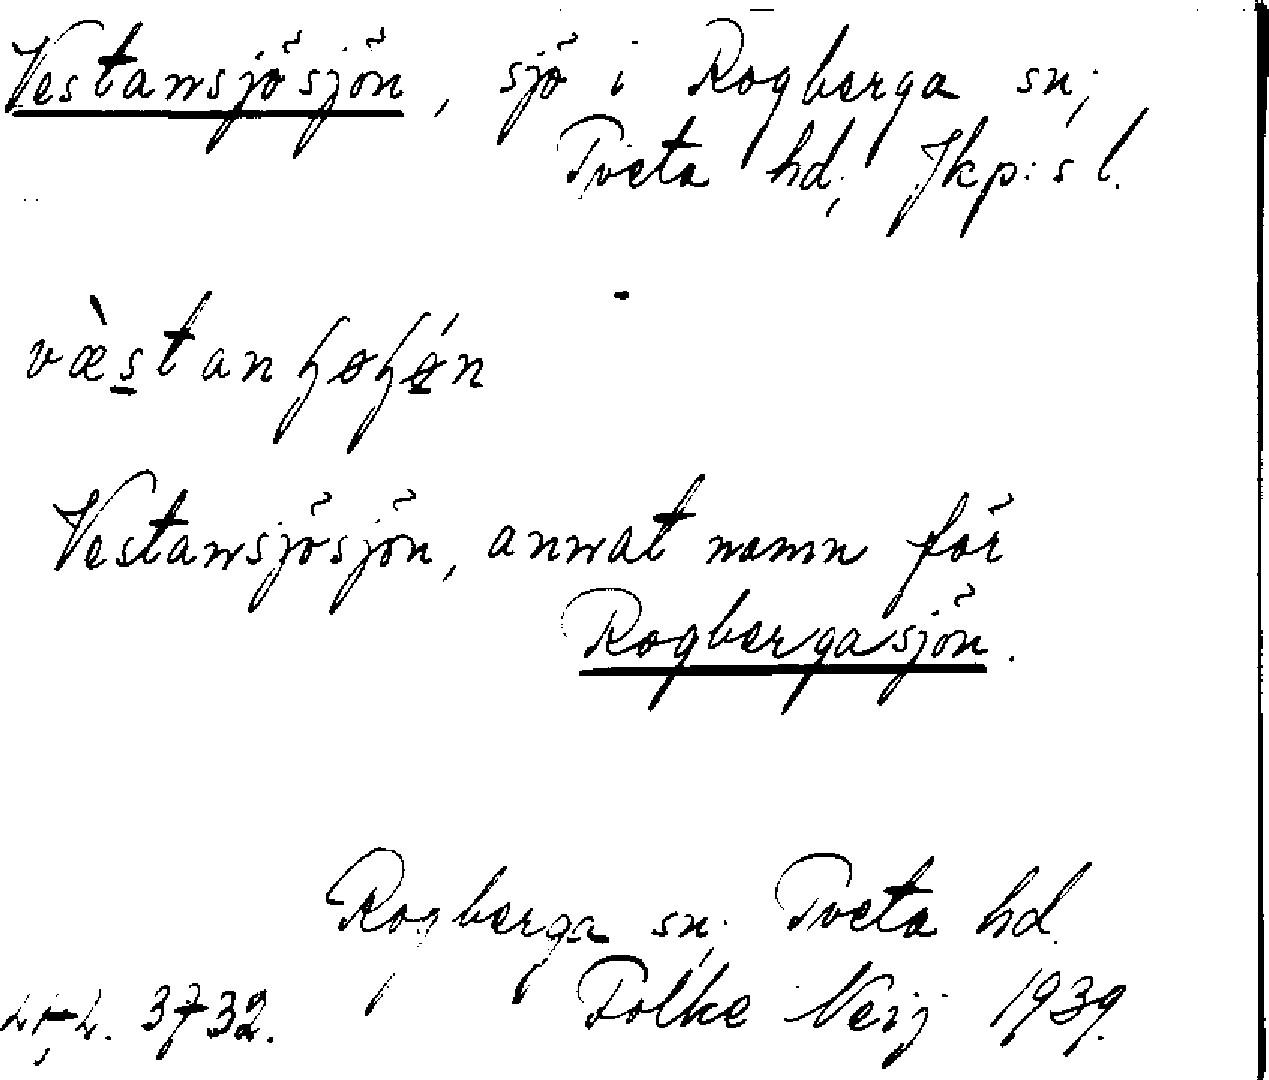 Vestansjösjön, sjö i Rogberga sn;
Tveta hd; Jkp:s l.
væ̀stanɧøɧǿn
Vestansjösjön, annat namn för
Rogbergasjön.
Rogberga sn; Tveta hd.
3732. Folke Neij 1939.